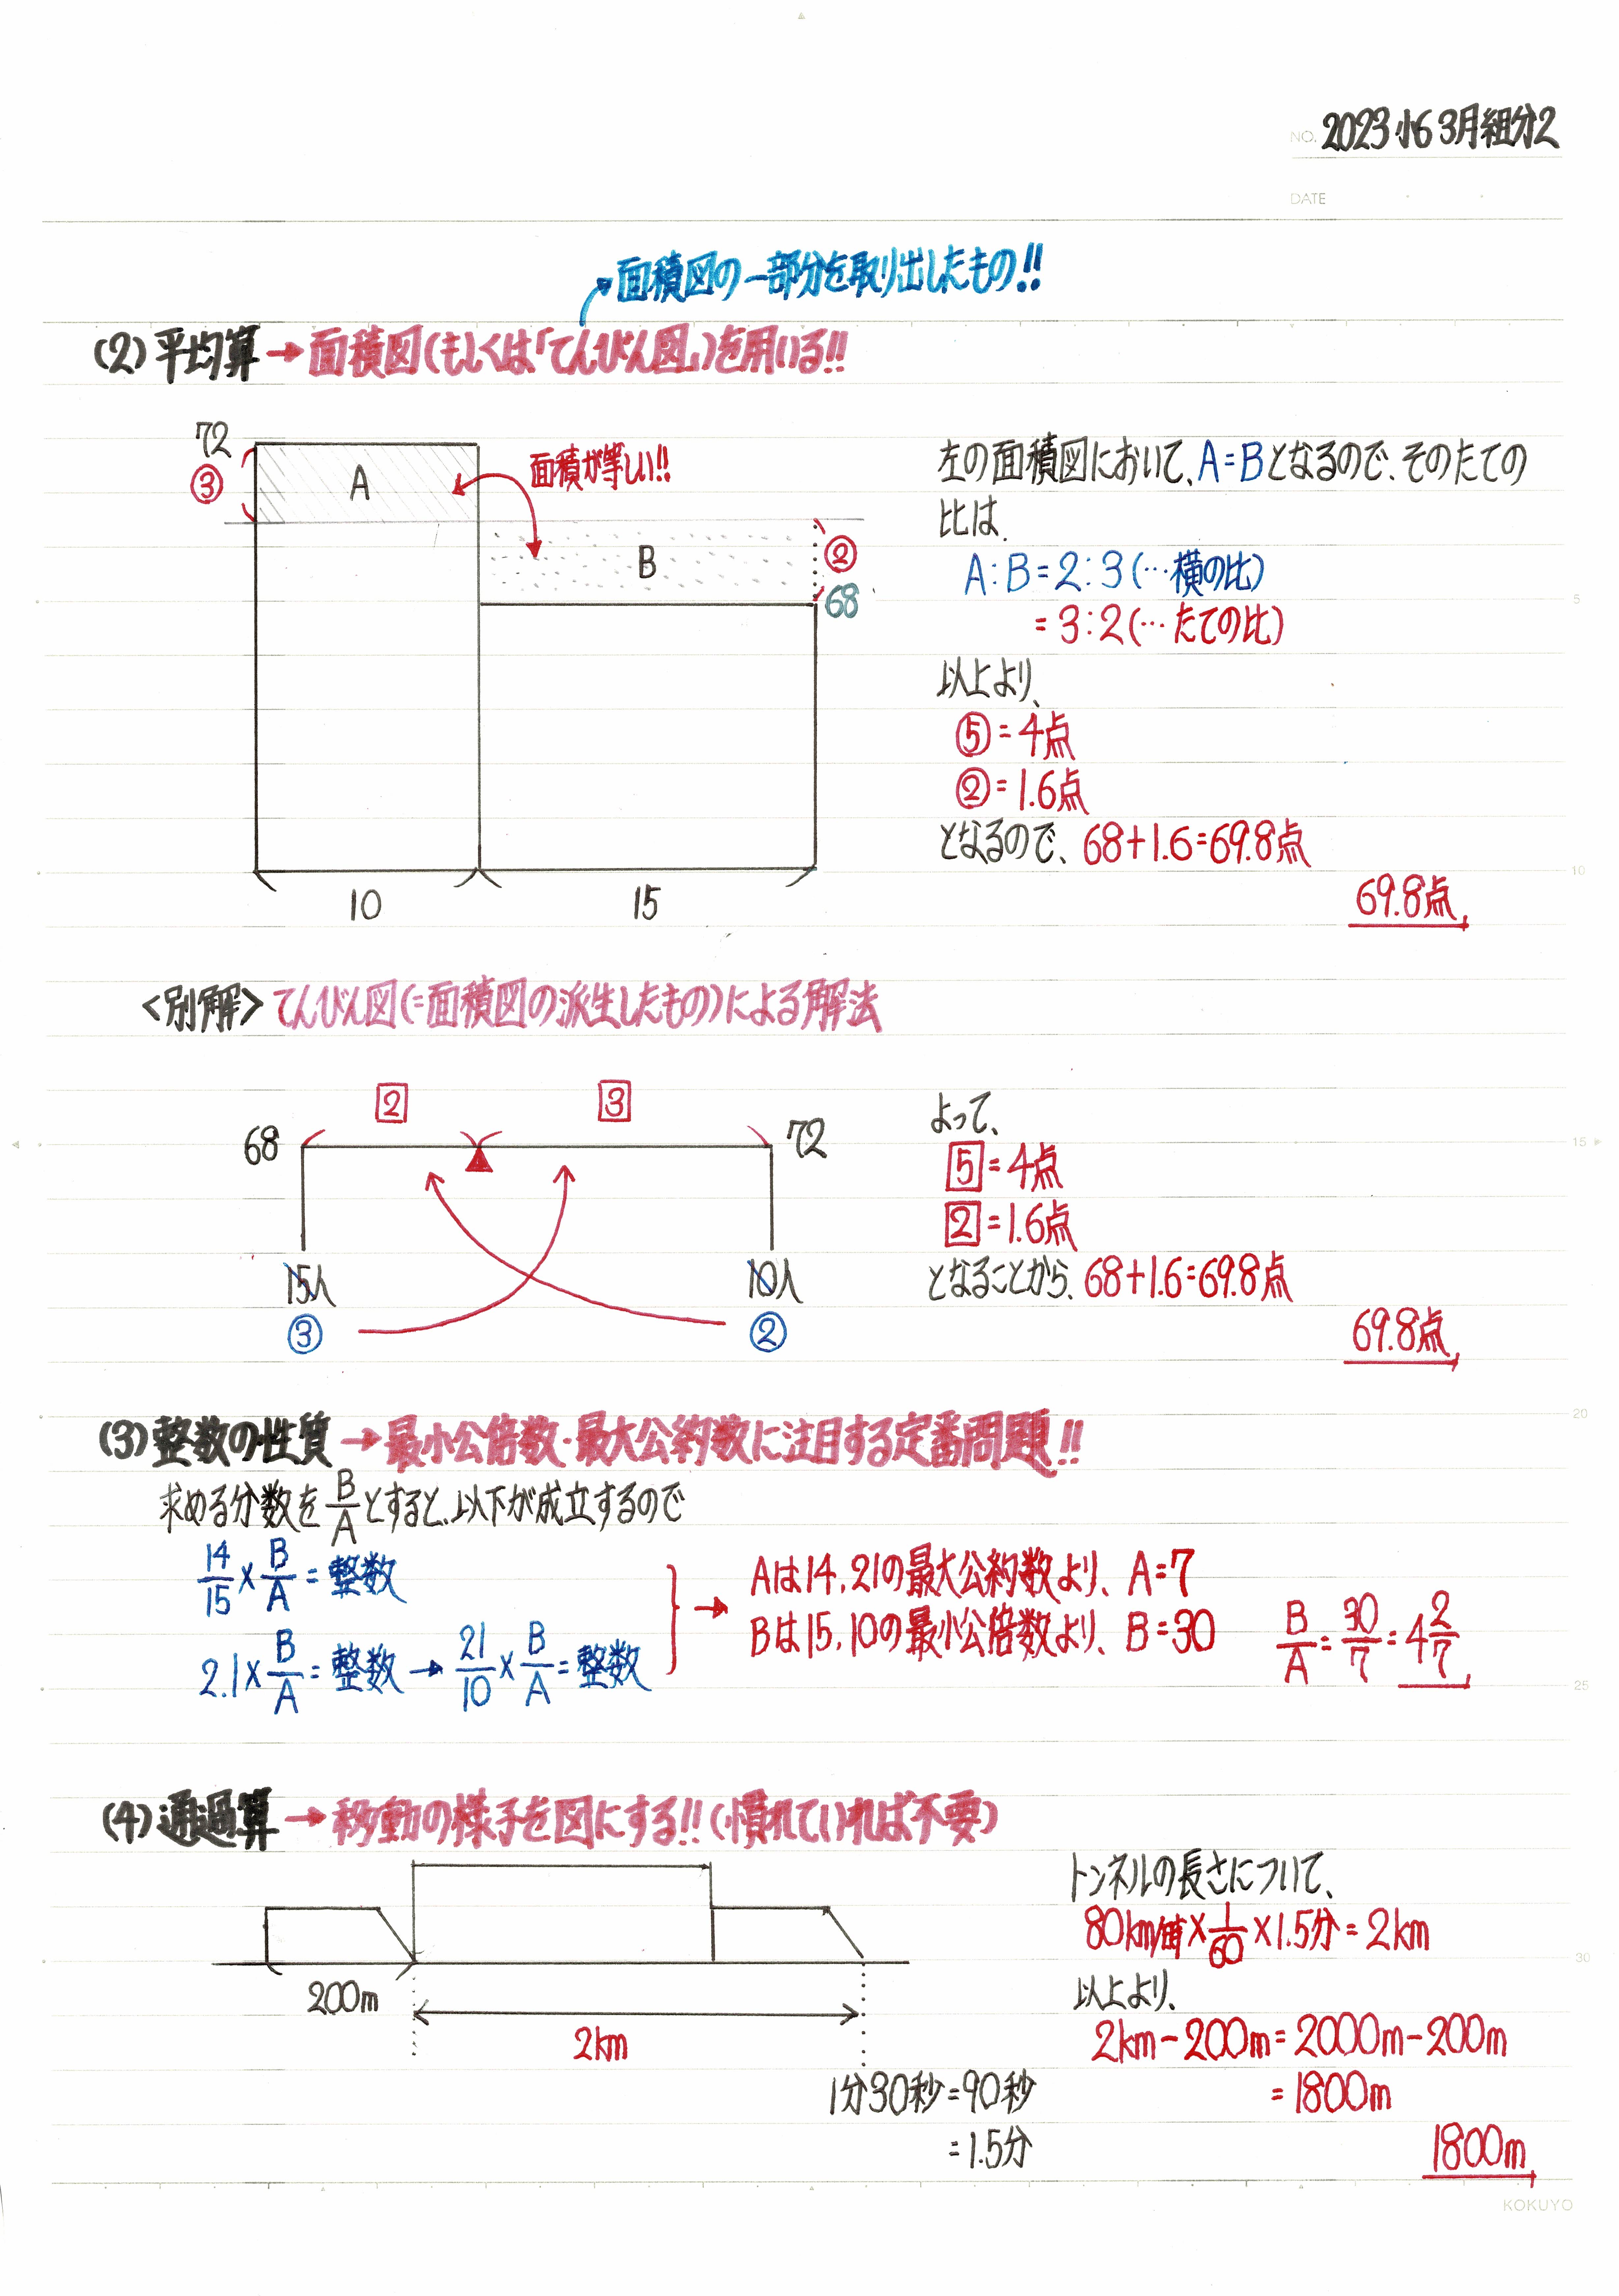 NO. 2023 小6 3月組分2
DATE
面積図の一部分を取り出したもの!!
(2)平均算→面積図(もしくは「てんびん図」)を用いる!!
72
③
A
面積が等しい!!
B
②
68
10
15
左の面積図において、A=Bとなるので、そのたての
比は、
A:B=2:3(…横の比)
=3:2(…たての比)
以上より、
⑤=4点
②=1.6点
となるので、68+1.6=69.8点
69.8点
5
10
<別解>てんびん図(=面積図の派生したもの)による解法
2
3
68
72
15人
10人
③
②
よって、
5=4点
2=1.6点
となることから、68+1.6=69.8点
69.8点
15
20
(3)整数の性質→最小公倍数・最大公約数に注目する定番問題!!
求める分数をB/Aとすると、以下が成立するので
14/15×B/A=整数
2.1×B/A=整数→21/10×B/A=整数
→Aは14,21の最大公約数より、A=7
Bは15,10の最小公倍数より、B=30
B/A=30/7=4 2/7
25
(4)通過算→移動の様子を図にする!!(慣れていれば不要)
200m
2km
1分30秒=90秒
=1.5分
トンネルの長さについて、
80km/時×1/60×1.5分=2km
以上より、
2km-200m=2000m-200m
=1800m
1800m
30
KOKUYO